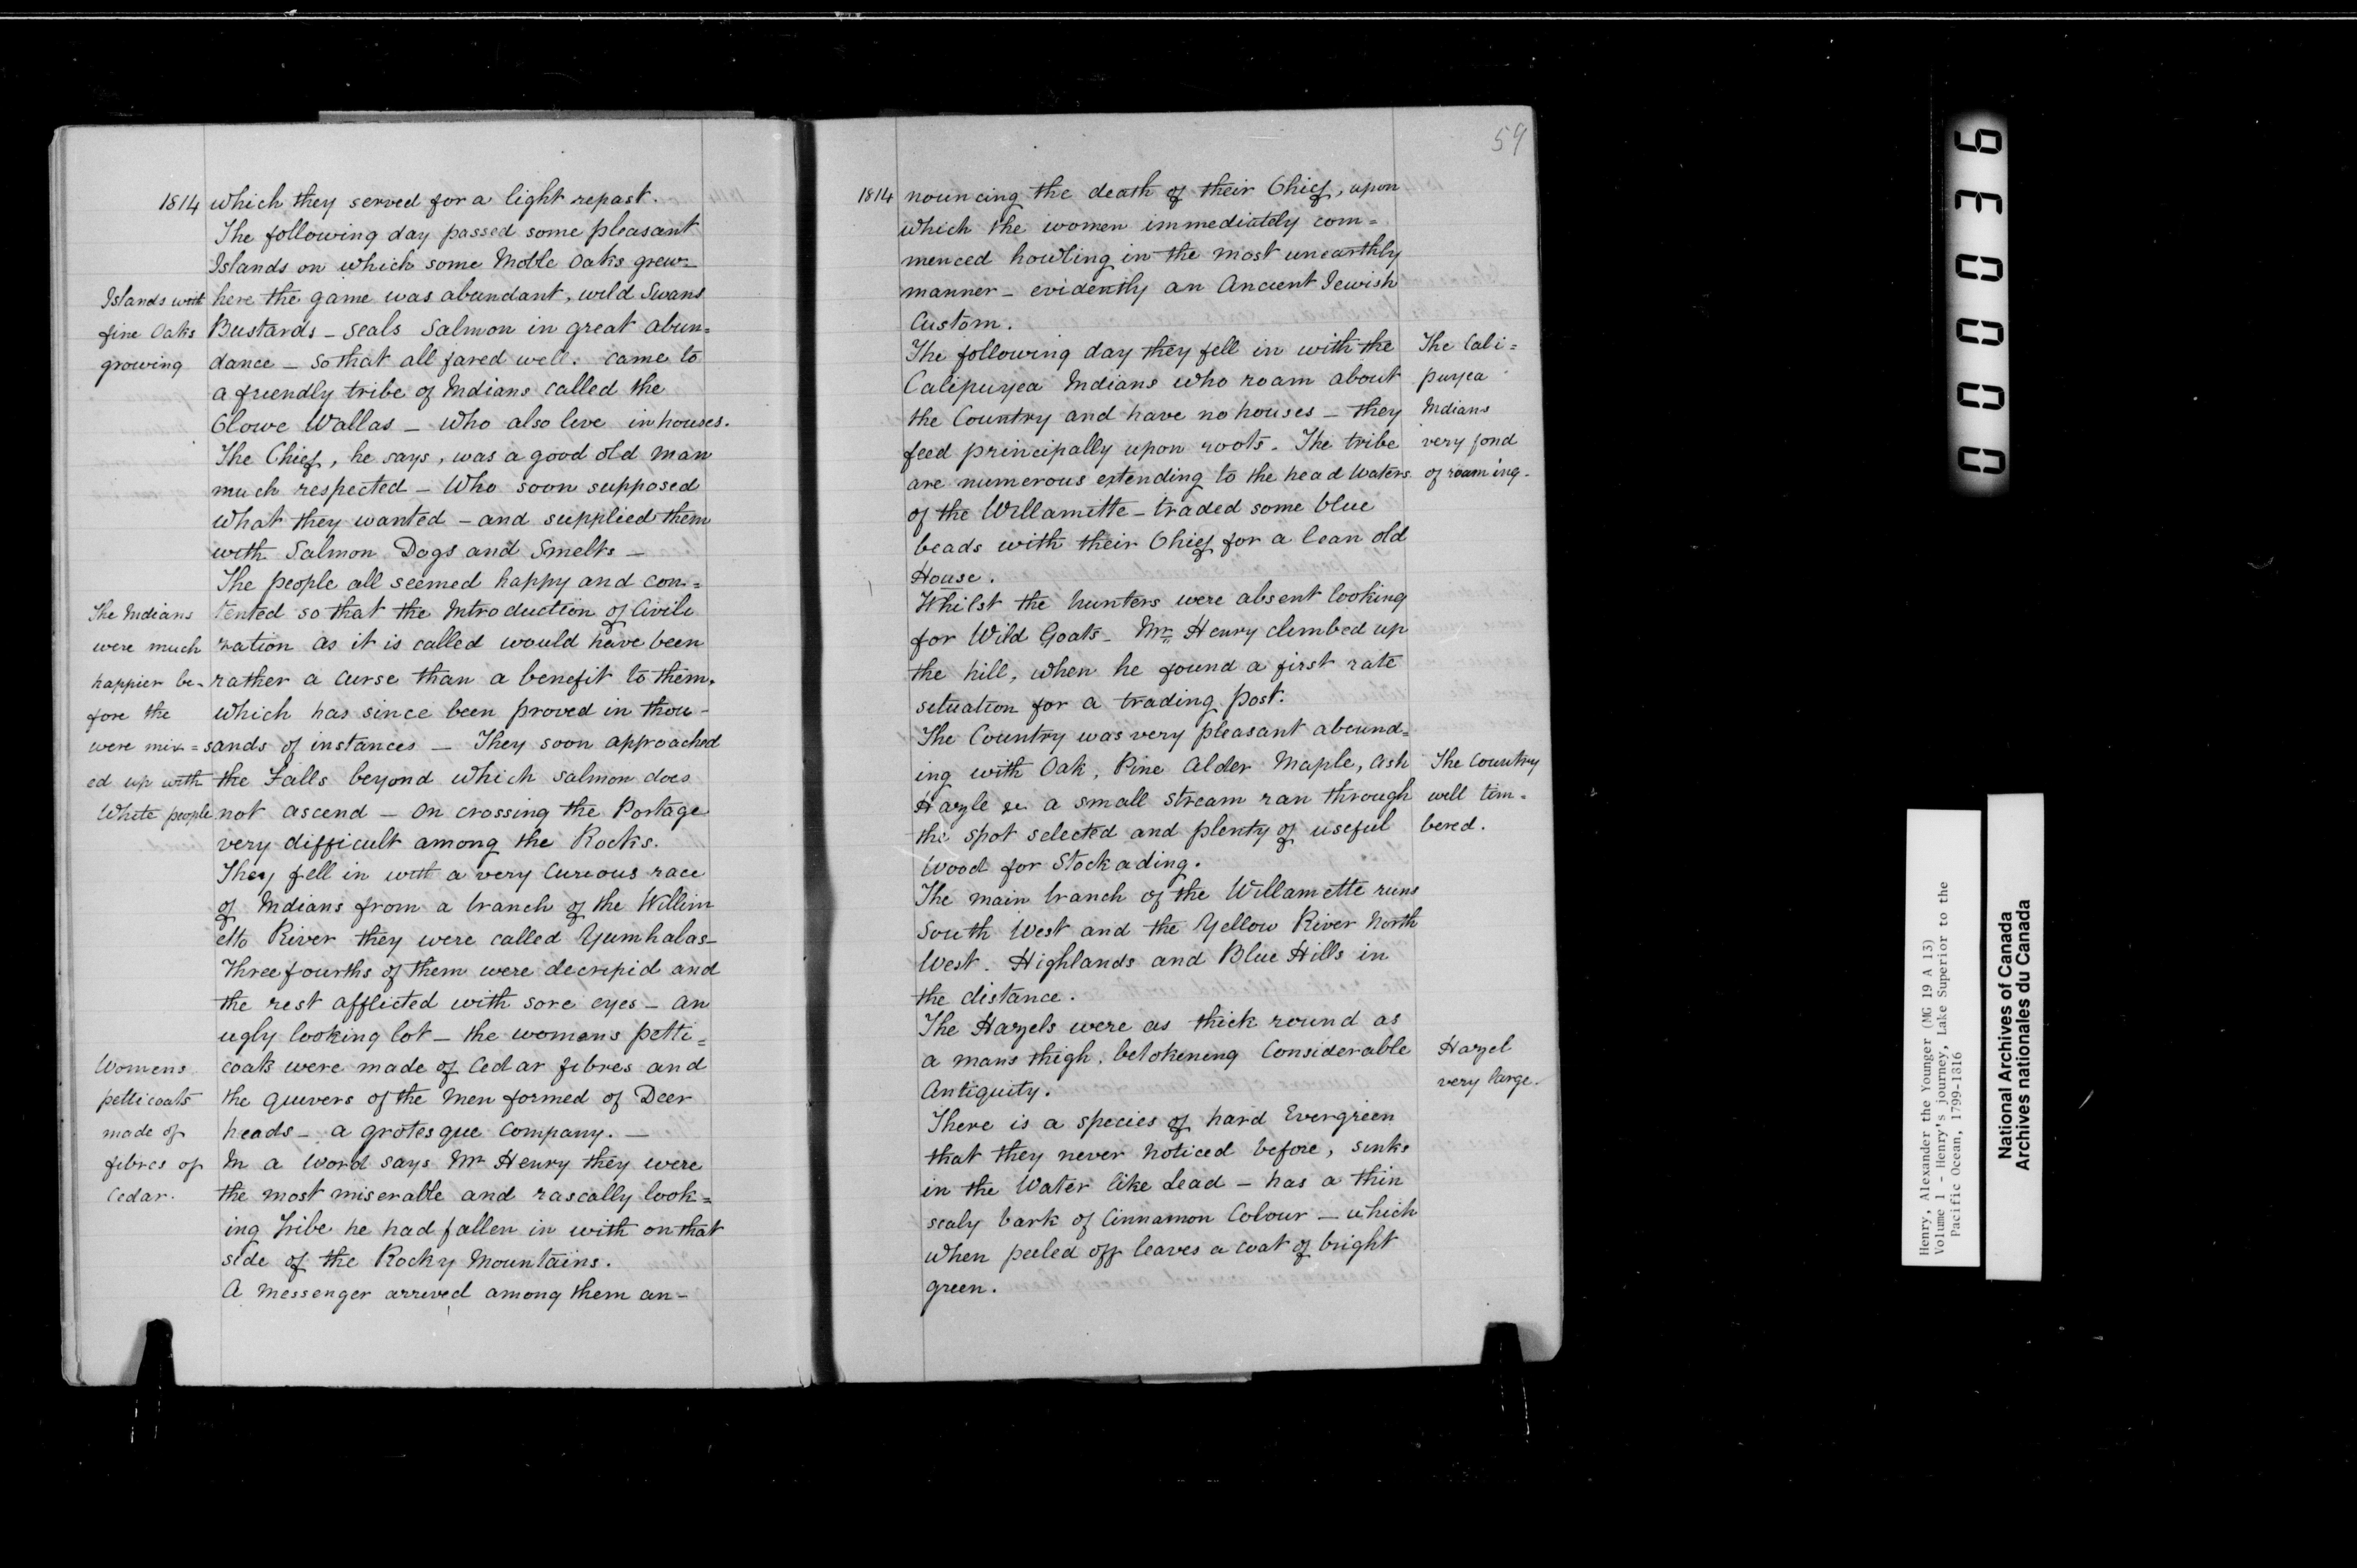 1814
which they served for a light repast.
The following day passed some pleasant
Islands on which some Noble Oaks grew—
here the game was abundant, wild Swans
Bustards — seals Salmon in great abun=
dance — so that all fared well. came to
a friendly tribe of Indians called the
Clowe Wallas — who also live in houses.
The Chief, he says, was a good old man
much respected — Who soon supposed
what they wanted — and supplied them
with Salmon Dogs and Smelts —
The people all seemed happy and con=
tented so that the Introduction of Civili
zation as it is called would have been
rather a curse than a benefit to them.
which has since been proved in thou-
sands of instances — They soon approached
the Falls beyond which salmon does
not ascend — On crossing the Portage
very difficult among the Rocks.
They fell in with a very Curious race
of Indians from a branch of the Willim
etto River they were called Yumhalas—
Three fourths of them were decripid and
the rest afflicted with sore eyes — an
ugly looking lot — the womens petti=
coats were made of Cedar fibres and
the quivers of the men formed of Deer
heads — a grotesque Company. —
In a word says Mr Henry they were
the most miserable and rascally look=
ing Tribe he had fallen in with on that
side of the Rocky Mountains.
A Messenger arrived among them an-
Islands with
fine Oaks
growing
The Indians
were much
happier be-
fore the
were mix=
ed up with
White people
Womens
petticoats
made of
fibres of
Cedar.
59
1814
nouncing the death of their Chief, upon
which the women immediately com=
menced howling in the most unearthly
manner — evidently an Ancient Jewish
Custom.
The following day they fell in with the
Calipuyea Indians who roam about
the Country and have no houses — they
feed principally upon roots. The tribe
are numerous extending to the head Waters
of the Willamette — traded some blue
beads with their Chief for a lean old
House.
Whilst the hunters were absent looking
for Wild Goats — Mr Henry climbed up
the hill, when he found a first rate
situation for a trading post.
The Country was very pleasant abound=
ing with Oak, Pine Alder Maple, Ash
Hazle &c a small stream ran through
the spot selected and plenty of useful
Wood for Stockading.
The main branch of the Willamette runs
South West and the Yellow River North
West. Highlands and Blue Hills in
the distance.
The Hazels were as thick round as
a mans thigh, betokening Considerable
Antiquity.
There is a species of hard Evergreen
that they never noticed before, sinks
in the Water like Lead — has a thin
scaly bark of Cinnamon Colour — which
when peeled off leaves a coat of bright
green.
The Cali=
puyea
Indians
very fond
of roaming.
The Country
well tim=
bered.
Hazel
very large.
000036
Henry, Alexander the Younger (MG 19 A 13)
Volume 1 - Henry's journey, Lake Superior to the
Pacific Ocean, 1799-1816
National Archives of Canada
Archives nationales du Canada